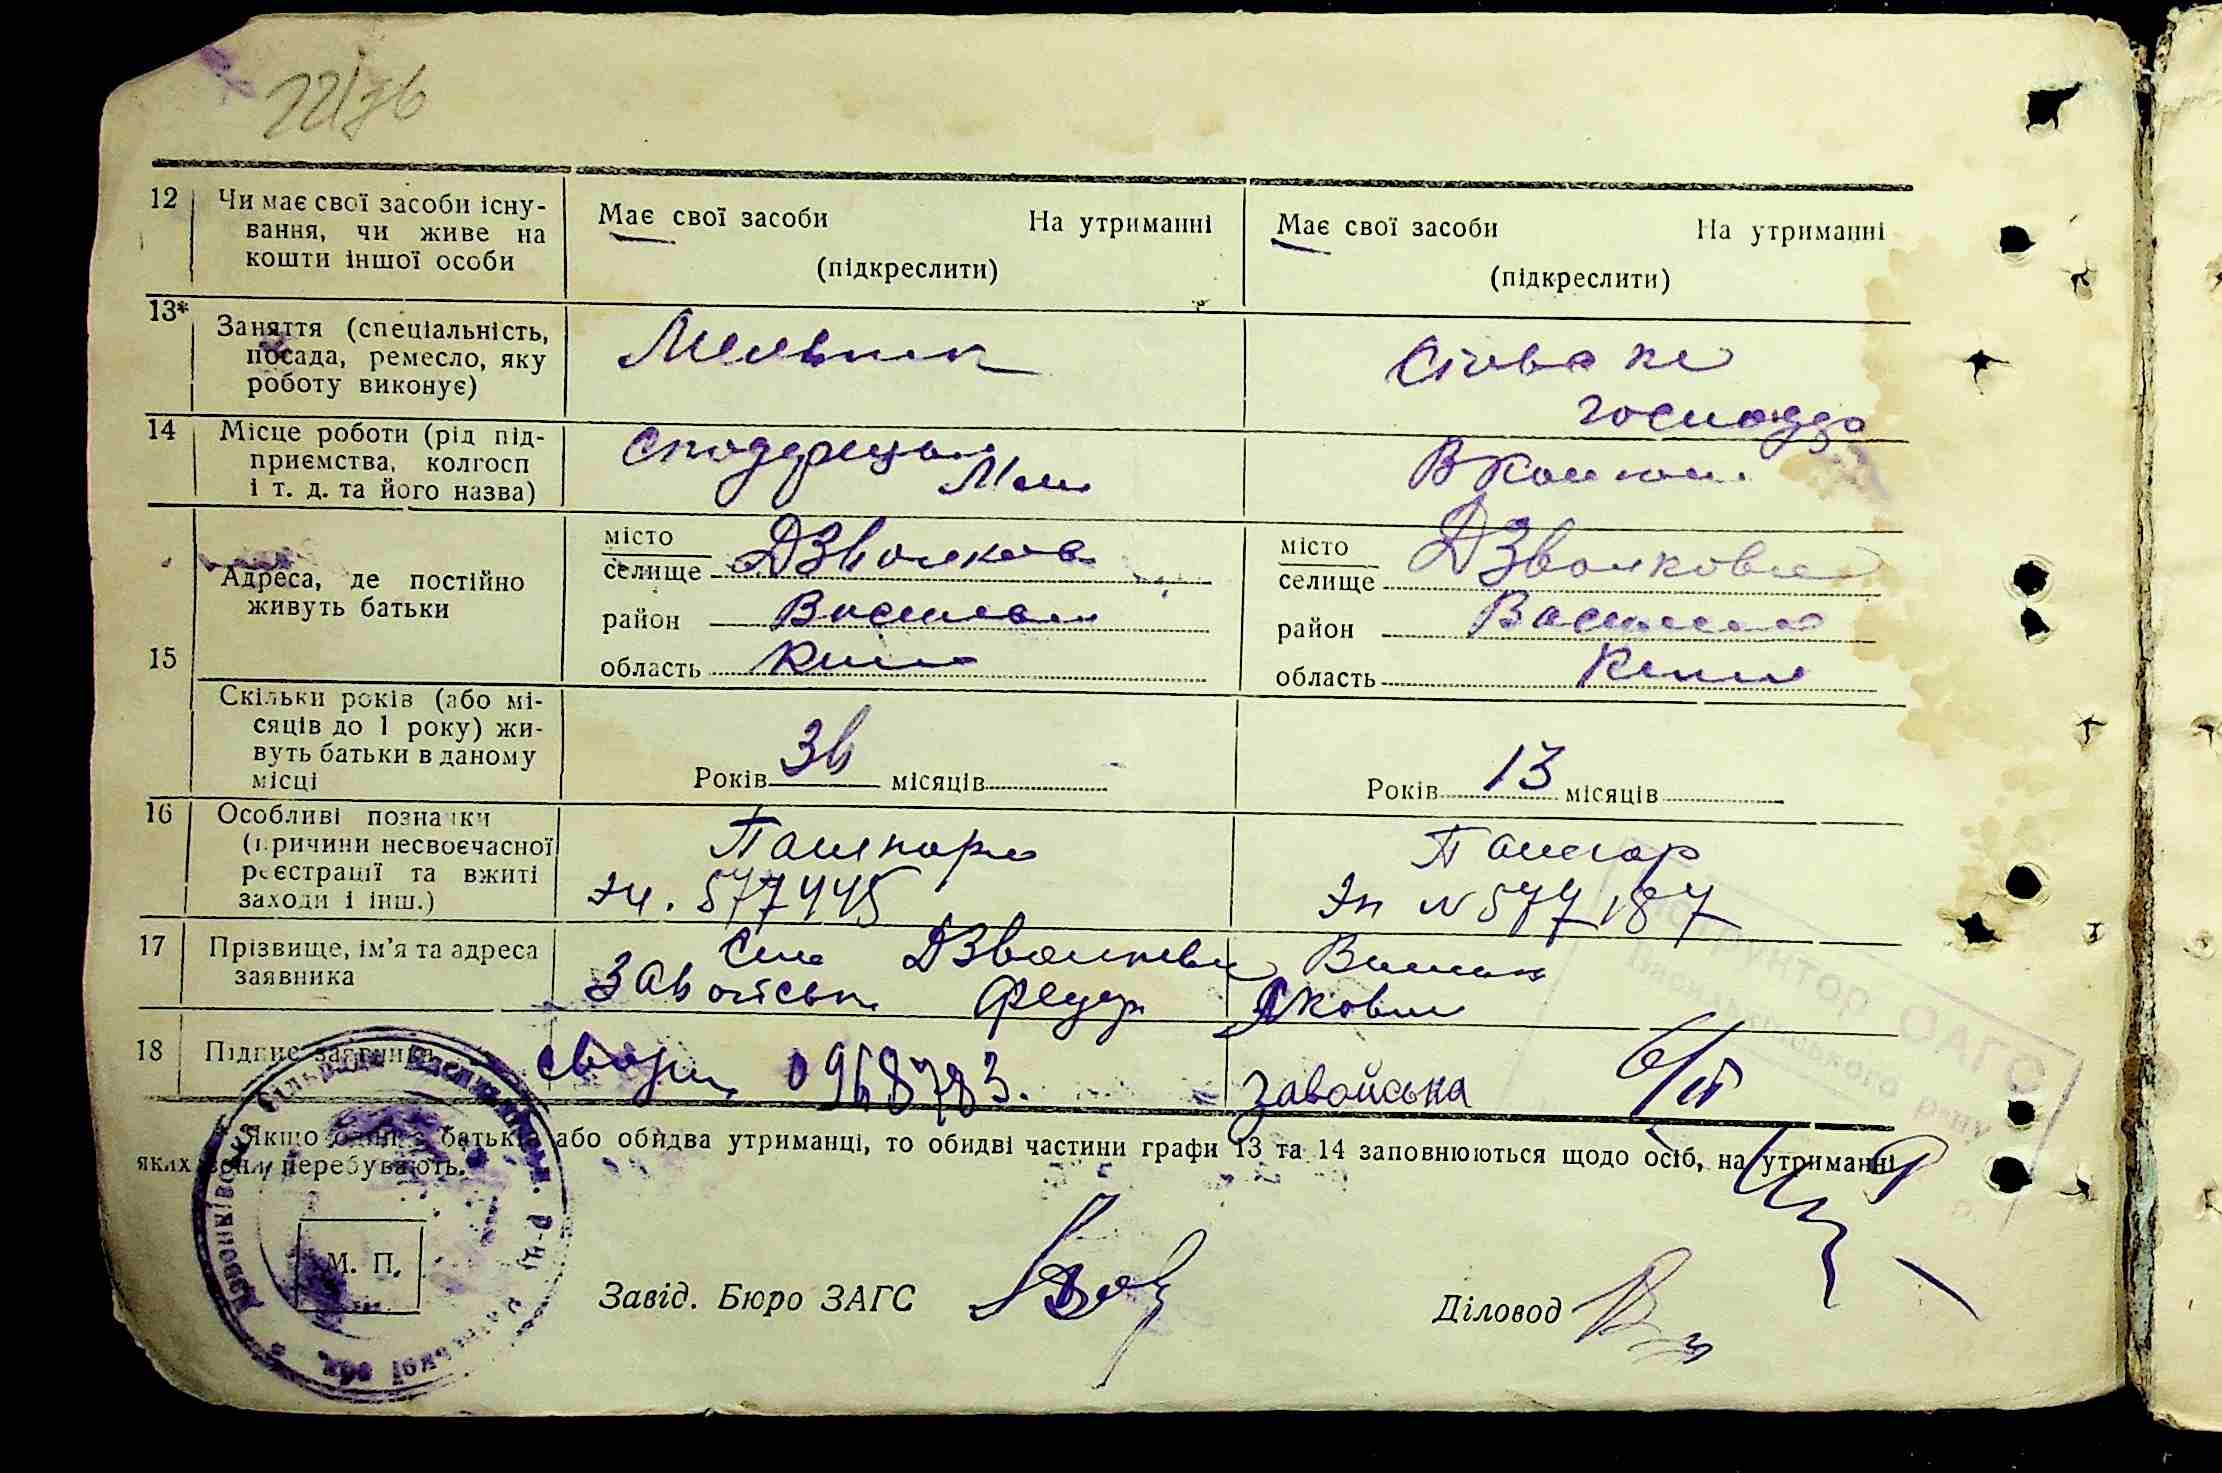 22/36
12 Чи має свої засоби існу-
вання, чи живе на
кошти іншої особи
Має свої засоби На утриманні
(підкреслити)
Має свої засоби На утриманні
(підкреслити)
13* Заняття (спеціальність,
посада, ремесло, яку
роботу виконує)
Мельник
14 Місце роботи (рід під-
приємства, колгосп
і т. д. та його назва)
Адреса, де постійно
живуть батьки
місто
селище Дзвонков
район Василькв
область Київ
місто
селище Дзвонкова
район Василькв
область Київ
15 Скільки років (або мі-
сяців до 1 року) жи-
вуть батьки в даному
місці
Років 36 місяців
Років 13 місяців
16 Особливі познаки
(причини несвоєчасної
реєстрації та вжиті
заходи і інш.)
Пашпорт
577445
Пашпор
№ 577187
17 Прізвище, ім'я та адреса
заявника
Село Дзвонкова
Завойськ Федор Яковл
18 Підпис заявника
0968783. Завойська
Якщо один з батьків або обидва утриманці, то обидві частини графи 13 та 14 заповнюються щодо осіб, на утриманні
яких вони перебувають.
М. П.
Завід. Бюро ЗАГС
Діловод
Інструктор ОАГС
Васильківського р-ну